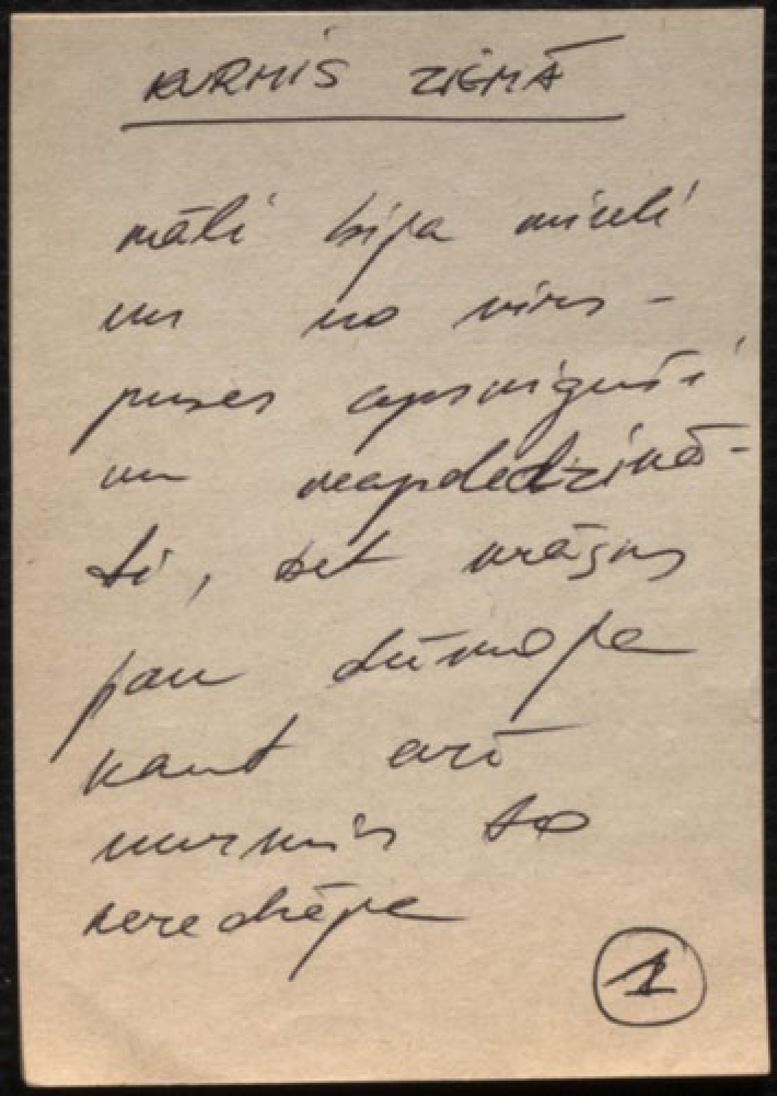 KURMIS ZIEMĀ
māli bija mīksti
un no virs-
puses apsniguši
un neapdedzinā-
ti, bet krāsns
jau dūmoja
kaut arī
kurmis to
neredzēja
1